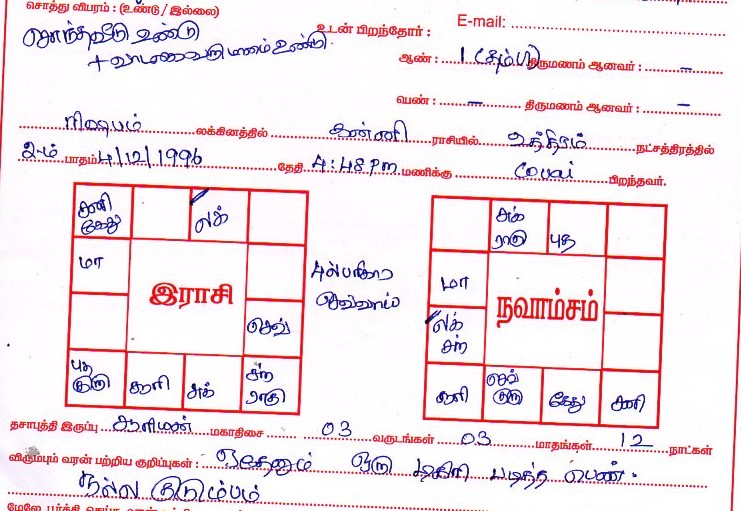 சொத்து விபரம் : (உண்டு / இல்லை)
சொந்தவீடு உண்டு
+ வாடகை வருமானம் உண்டு.
உடன் பிறந்தோர் :
E-mail:
ஆண் : 1 (தம்பி) திருமணம் ஆனவர் : –
பெண் : – திருமணம் ஆனவர் : –
ரிஷபம் லக்கினத்தில் கன்னி ராசியில் உத்திரம் நட்சத்திரத்தில்
2-ம் பாதம் 4/12/1996 தேதி 4:48 PM மணிக்கு கோவை பிறந்தவர்.
சனி கேது
லக்
மா
இராசி
செவ்
புத குரு
சுக்
சந் ராகு
செவ்வாய்
சுக் ராகு
புத
மா
நவாம்சம்
லக் சந்
செவ் குரு
கேது
சனி
தசாபுத்தி இருப்பு சூரியன் மகாதிசை 03 வருடங்கள் 03 மாதங்கள் 12 நாட்கள்
விரும்பும் வரன் பற்றிய குறிப்புகள் : ஏதேனும் ஒரு டிகிரி படித்த பெண்.
நல்ல குடும்பம்